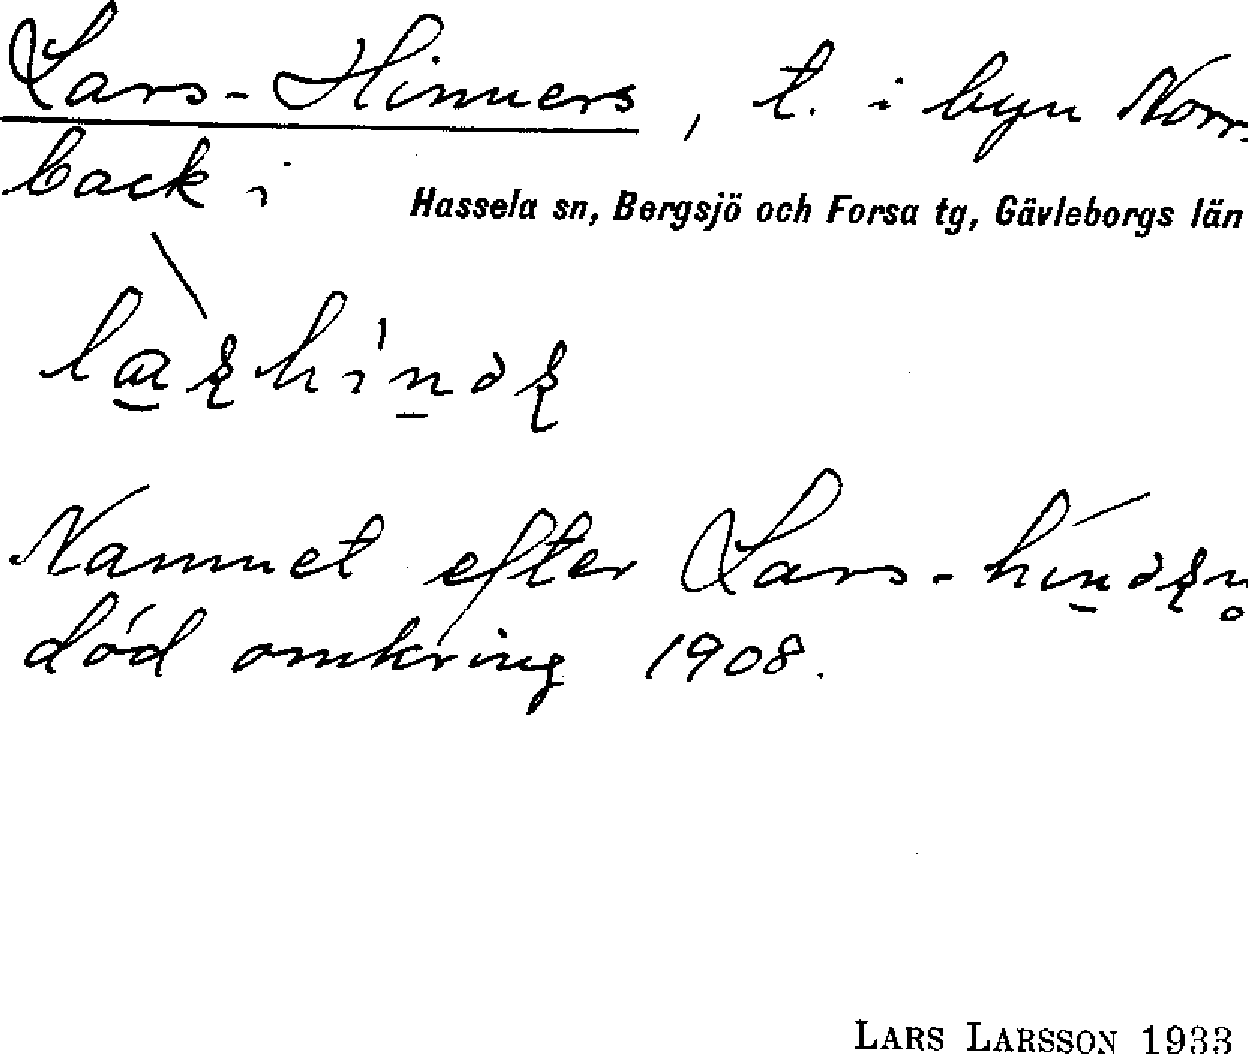 Lars-Hinners, t. i byn Norr-
back i
Hassela sn, Bergsjö och Forsa tg, Gävleborgs län
Namnet efter Lars-
död omkring 1908.
LARS LARSSON 1933